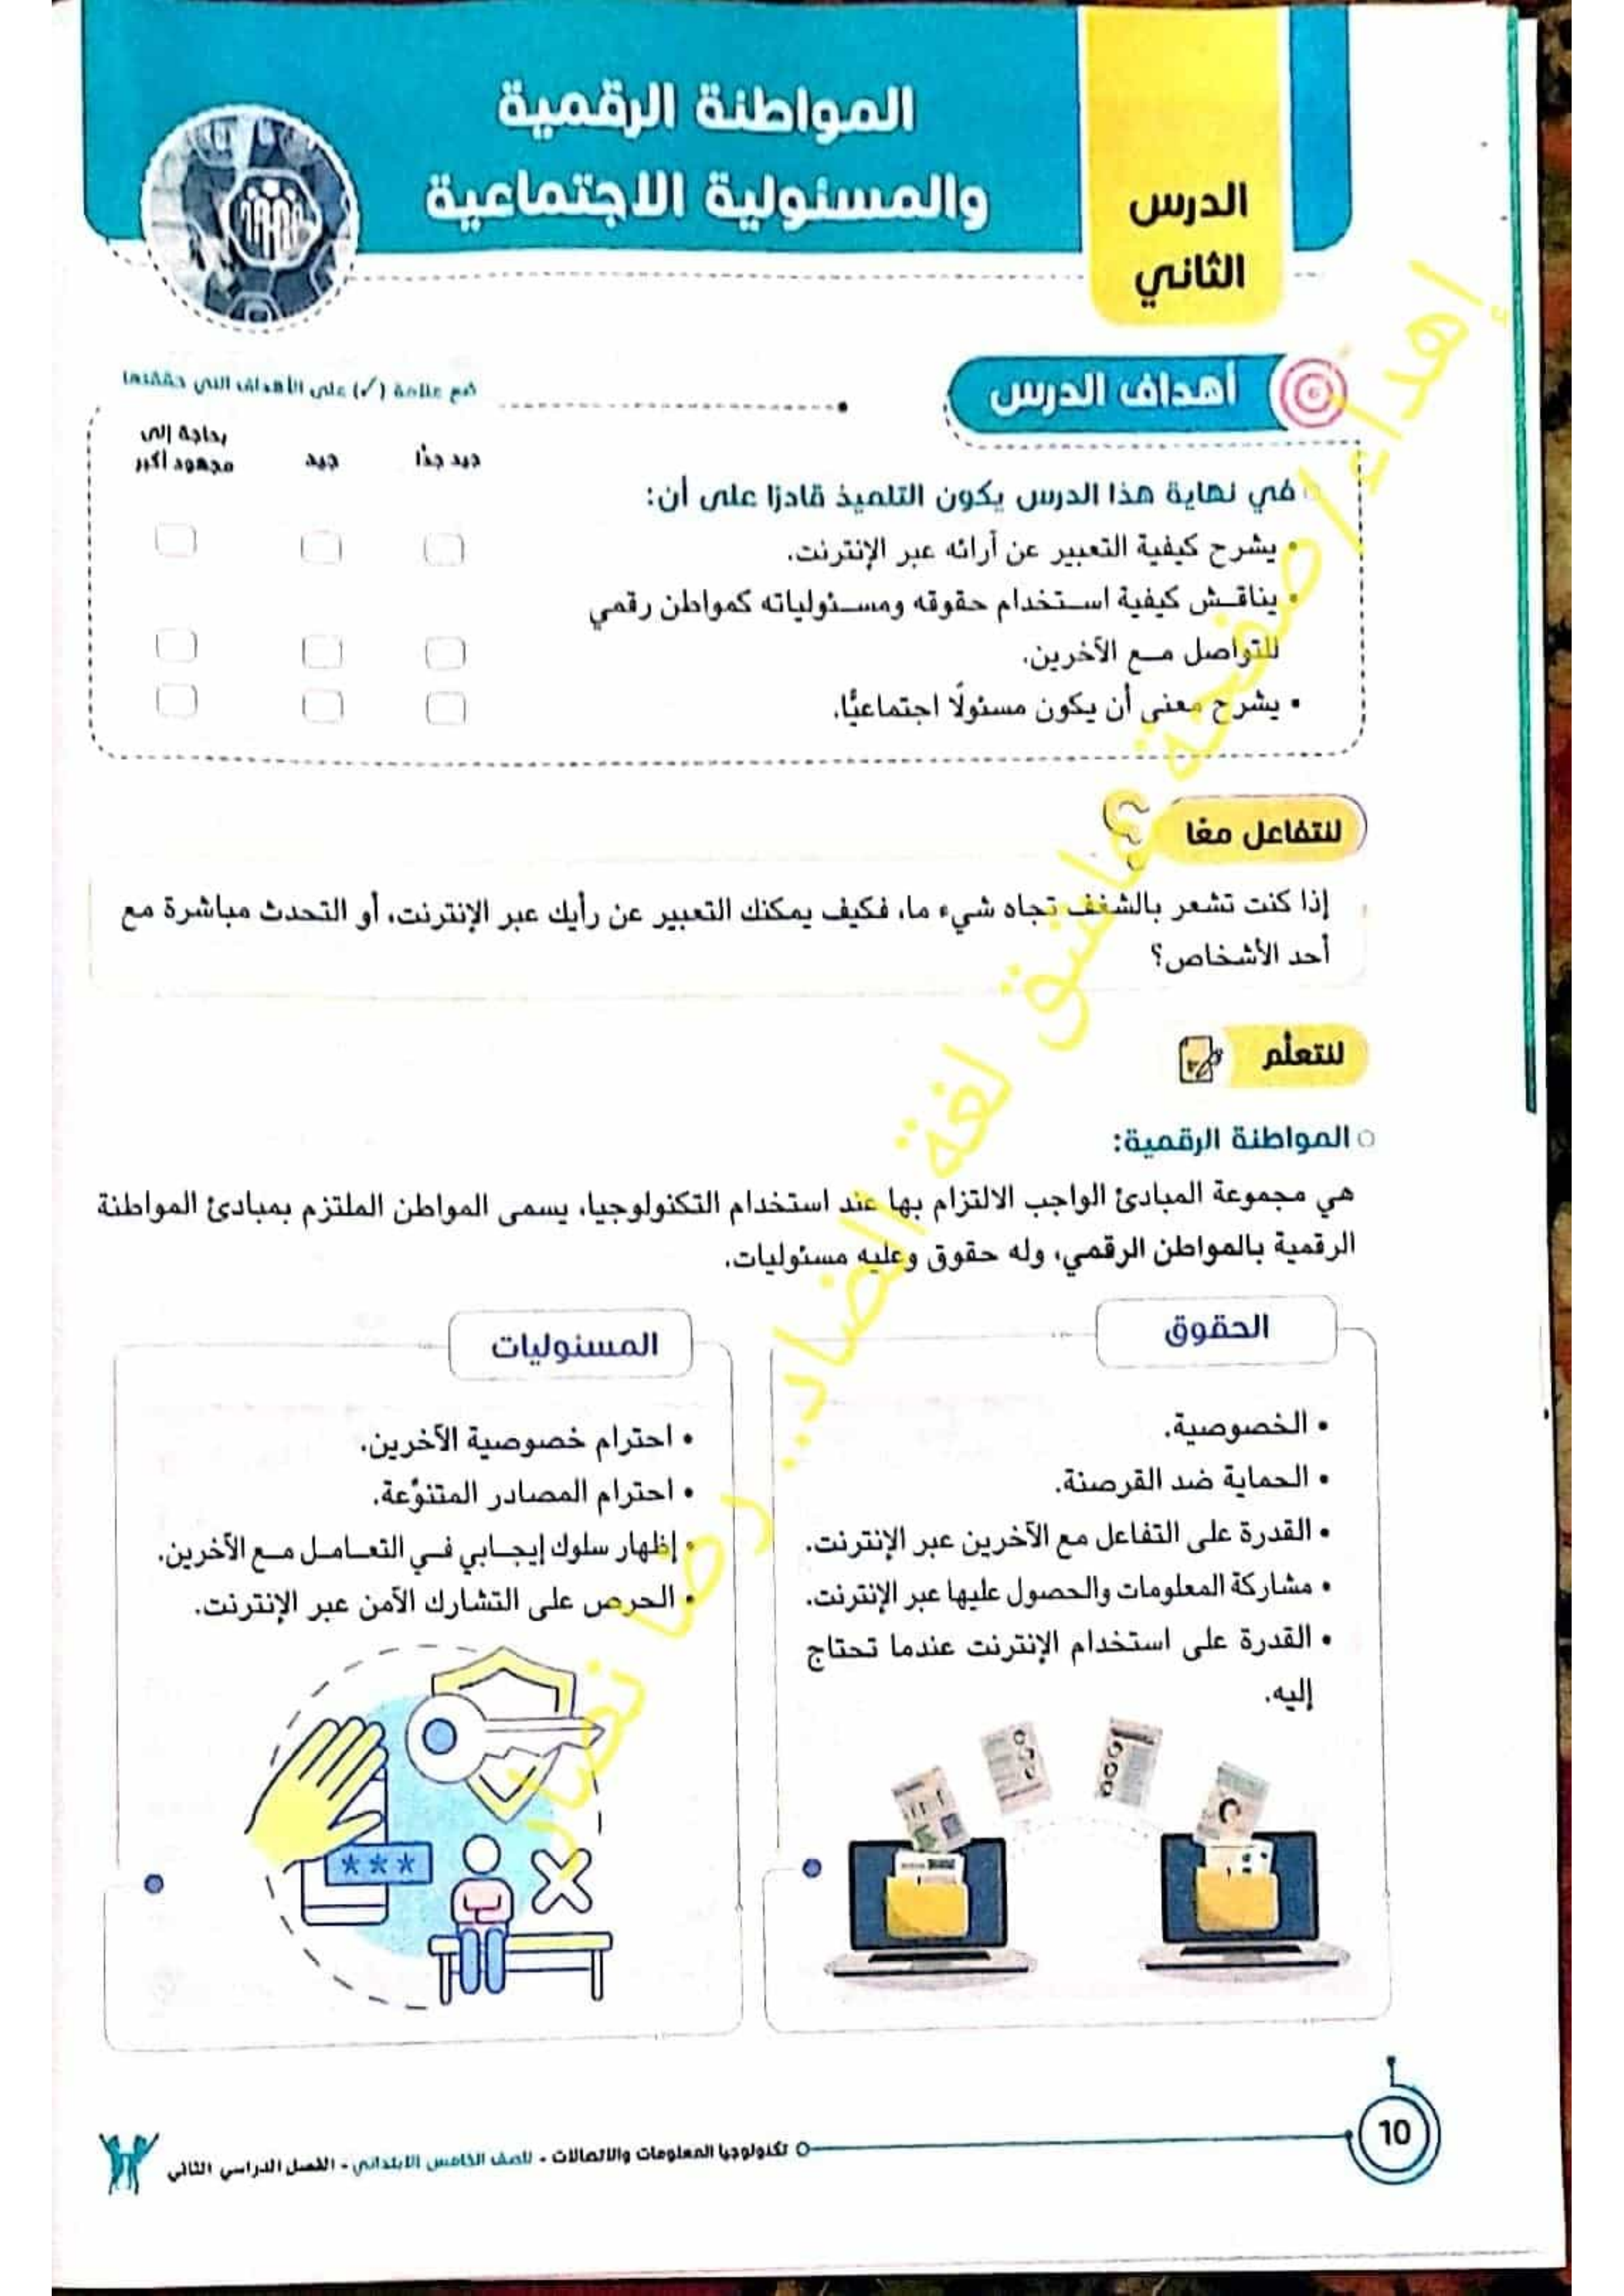 الدرس
الثاني
المواطنة الرقمية
والمسئولية الاجتماعية
أهداف الدرس
ضع علامة (✓) على الأهداف التي حققتها
جيد جدًا
جيد
بحاجة إلى
مجهود أكبر
في نهاية هذا الدرس يكون التلميذ قادرًا على أن:
• يشرح كيفية التعبير عن آرائه عبر الإنترنت.
• يناقش كيفية استخدام حقوقه ومسئولياته كمواطن رقمي
للتواصل مع الآخرين.
• يشرح معنى أن يكون مسئولًا اجتماعيًّا.
لنتفاعل معًا
إذا كنت تشعر بالشغف تجاه شيء ما، فكيف يمكنك التعبير عن رأيك عبر الإنترنت، أو التحدث مباشرة مع
أحد الأشخاص؟
لنتعلَّم
المواطنة الرقمية:
هي مجموعة المبادئ الواجب الالتزام بها عند استخدام التكنولوجيا، يسمى المواطن الملتزم بمبادئ المواطنة
الرقمية بالمواطن الرقمي، وله حقوق وعليه مسئوليات.
الحقوق
• الخصوصية.
• الحماية ضد القرصنة.
• القدرة على التفاعل مع الآخرين عبر الإنترنت.
• مشاركة المعلومات والحصول عليها عبر الإنترنت.
• القدرة على استخدام الإنترنت عندما تحتاج
إليه.
المسئوليات
• احترام خصوصية الآخرين.
• احترام المصادر المتنوِّعة.
• إظهار سلوك إيجابي في التعامل مع الآخرين.
• الحرص على التشارك الآمن عبر الإنترنت.
***
10
تكنولوجيا المعلومات والاتصالات - للصف الخامس الابتدائي - الفصل الدراسي الثاني
إهداء/ صفحة عاشق لغة الضاد.. رضا نصار